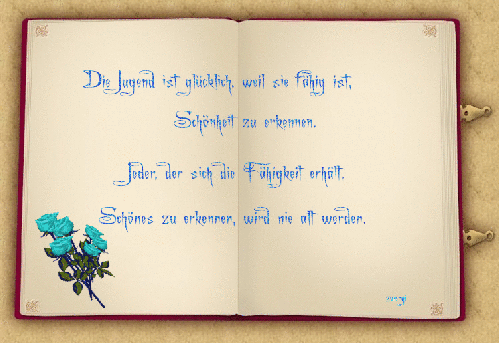 Die Jugend ist glücklich, weil sie fähig ist,
Schönheit zu erkennen.
Jeder, der sich die Fähigkeit erhält,
Schönes zu erkennen, wird nie alt werden.